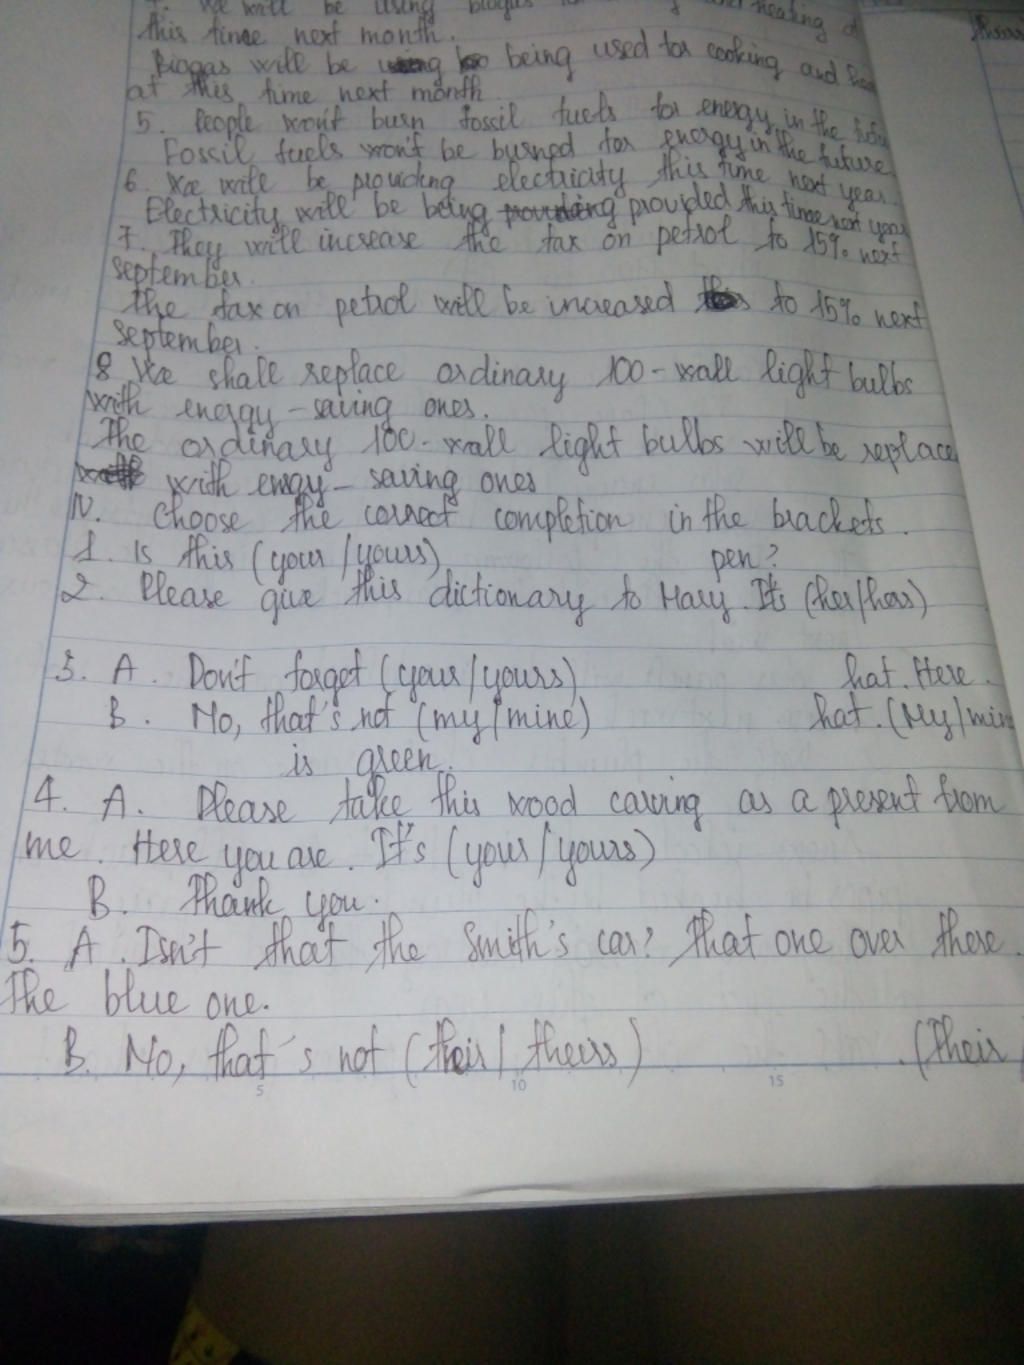 We will be using biogas heating
this time next month.
Biogas will be being used for cooking and
at this time next month
5. People won't burn fossil fuels for energy in the
Fossil fuels won't be burned for energy in the future
6. We will be providing electricity this time next year.
Electricity will be being provided this time next year
7. They will increase the tax on petrol to 15% next
september.
The tax on petrol will be increased to 15% next
september.
8 We shall replace ordinary 100-wall light bulbs
with energy-saving ones.
The ordinary 100-wall light bulbs will be replace
with enrgy-saving ones
IV. Choose the correct completion in the brackets.
1. Is this (your/yours) pen?
2. Please give this dictionary to Mary. It's (her/hers)
3. A. Don't forget (your/yours) hat. Here.
B. No, that's not (my/mine) hat. (My/min
is green.
4. A. Please take this wood carving as a present from
me. Here you are. It's (your/yours)
B. Thank you.
5. A. Isn't that the Smith's car? That one over there.
The blue one.
B. No, that's not (their/theirs) . (Their
5 10 15